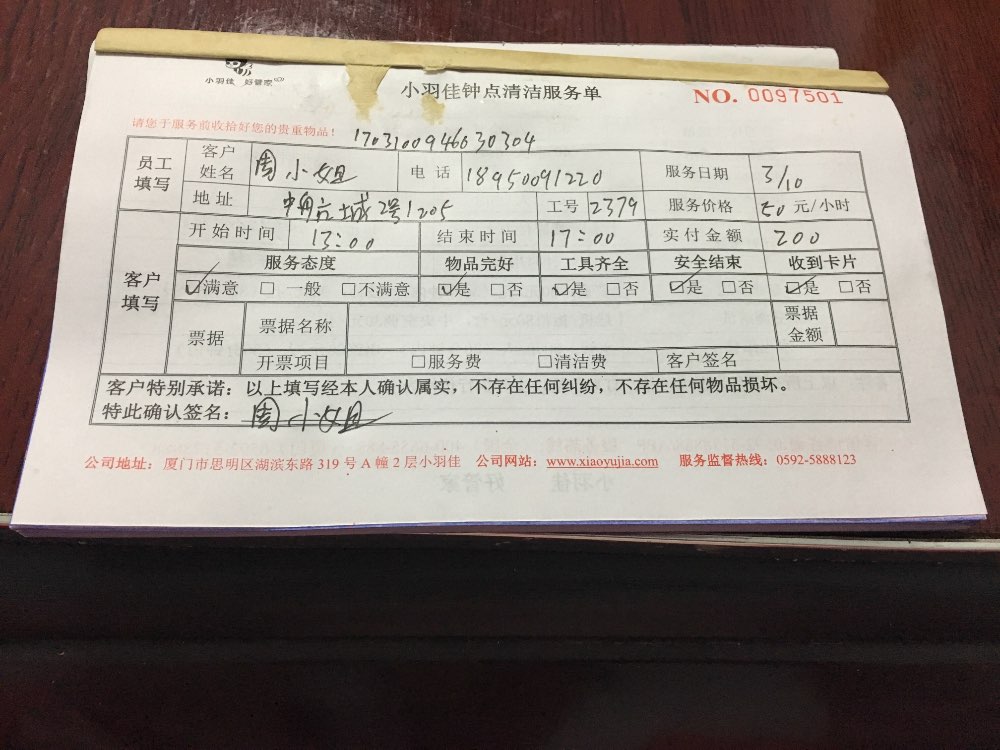 小羽佳 好管家
小羽佳钟点清洁服务单
NO. 0097501
请您于服务前收拾好您的贵重物品！
170310094630304
员工填写 客户姓名 周小姐 电话 18950091220 服务日期 3/10
地址 城2号1205 工号 2379 服务价格 50 元/小时
客户填写 开始时间 13:00 结束时间 17:00 实付金额 200
服务态度 物品完好 工具齐全 安全结束 收到卡片
☑满意 □一般 □不满意 ☑是 □否 ☑是 □否 ☑是 □否 ☑是 □否
票据 票据名称 票据金额
开票项目 □服务费 □清洁费 客户签名
客户特别承诺：以上填写经本人确认属实，不存在任何纠纷，不存在任何物品损坏。
特此确认签名：周小姐
公司地址：厦门市思明区湖滨东路 319 号 A 幢 2 层小羽佳 公司网站：www.xiaoyujia.com 服务监督热线：0592-5888123